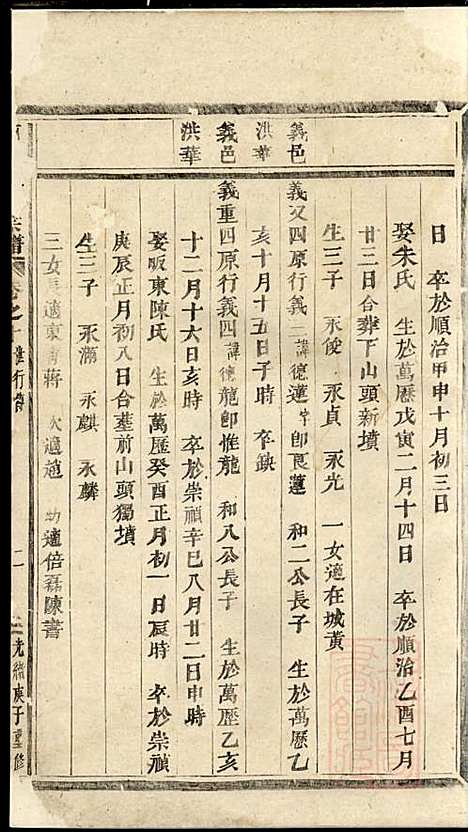 日　卒於順治甲申十月初三日
娶朱氏　生於萬曆戊寅二月十四日　卒於順治乙酉七月
廿三日合葬下山頭新墳
生三子　永俊　永貞　永光　一女適在城黃
義邑
洪華
義又四原行義三諱德蓮字卽良蓮　和二公長子　生於萬曆乙
亥十月十五日子時　卒缺
義邑
洪華
義重四原行義四諱德龍卽惟龍　和八公長子　生於萬歷乙亥
十二月十六日亥時　卒於崇禎辛巳八月廿二日申時
娶畈東陳氏　生於萬歷癸酉正月初一日辰時　卒於崇禎
庚辰正月初八日合葬前山頭獨墳
生三子　永滿　永麒　永麟
三女長適東　蔣　次適趙　幼適倍磊陳書
宗譜　卷之十　行傳　二　光緒庚子重修